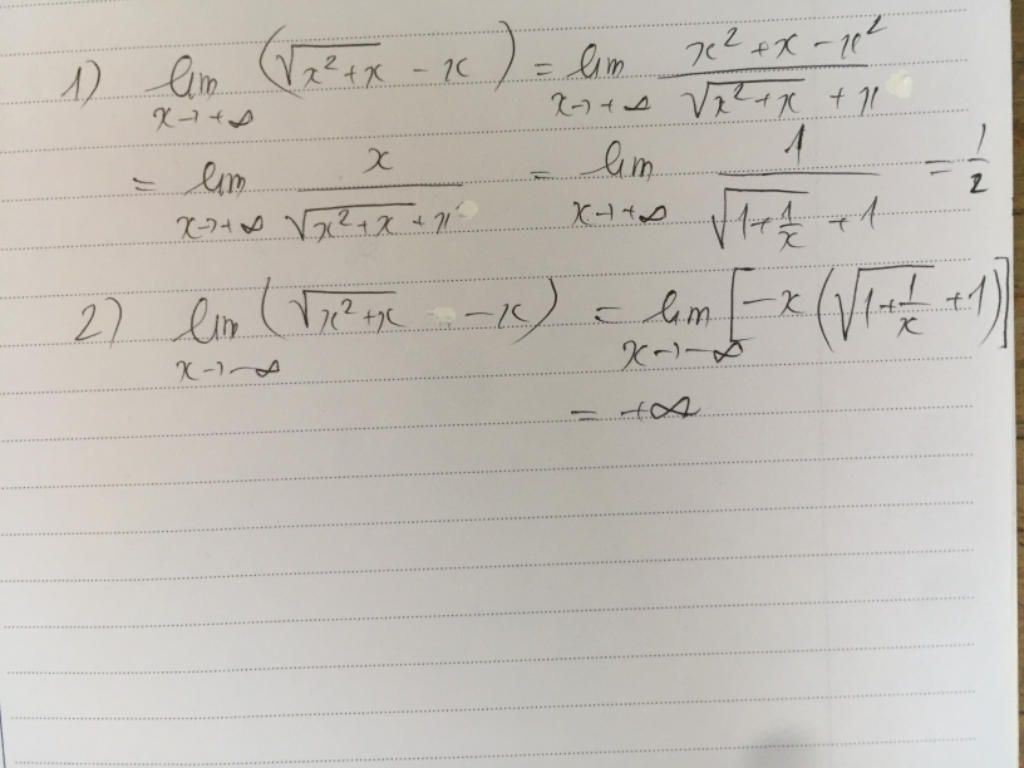 1) lim x→+∞ (√(x²+x) - x) = lim x→+∞ (x²+x-x²)/(√(x²+x) + x)
= lim x→+∞ x/(√(x²+x)+x) = lim x→+∞ 1/(√(1+1/x) + 1) = 1/2
2) lim x→-∞ (√(x²+x) - x) = lim x→-∞ [-x(√(1+1/x) +1)]
= +∞